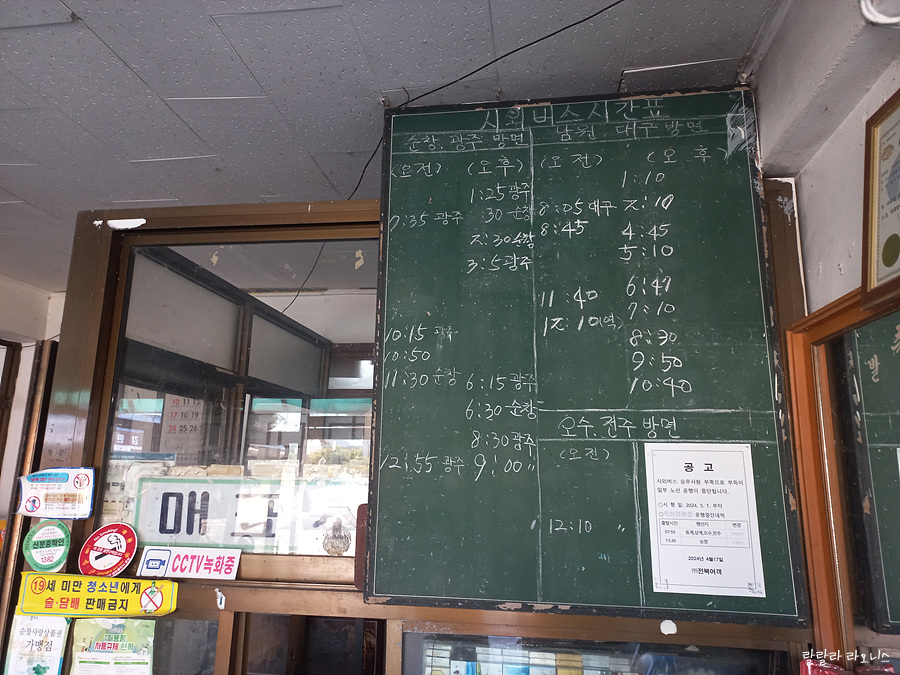 시외버스시간표
순창, 광주 방면
남원, 대구 방면
(오전) (오후) (오전) (오후)
1:25 광주
7:35 광주
:30 순창
2:30 순창
3:5 광주
10:15 광주
10:50
11:30 순창
6:15 광주
6:30 순창
8:30 광주
12:55 광주
9:00 "
8:05 대구
8:45
11:40
12:10 (역)
1:10
2:10
4:45
5:10
6:47
7:10
8:30
9:50
10:40
오수, 전주 방면
(오전)
" 12:10 "
공 고
시외버스 승무사원 부족으로 부득이
일부 노선 운행이 중단됩니다.
○시 행 일: 2024. 5. 1. 부터
운행중단내역
출발시간 행선지 변경
07:55
13:30 순창
2024년 4월17일
㈜전북여객
매표
10 11 12
17 18 19
24 25 26
신분증확인
1382
CCTV녹화중
19세 미만 청소년에게
술·담배 판매금지
순창사랑상품권
가맹점
랄랄라 라오니스